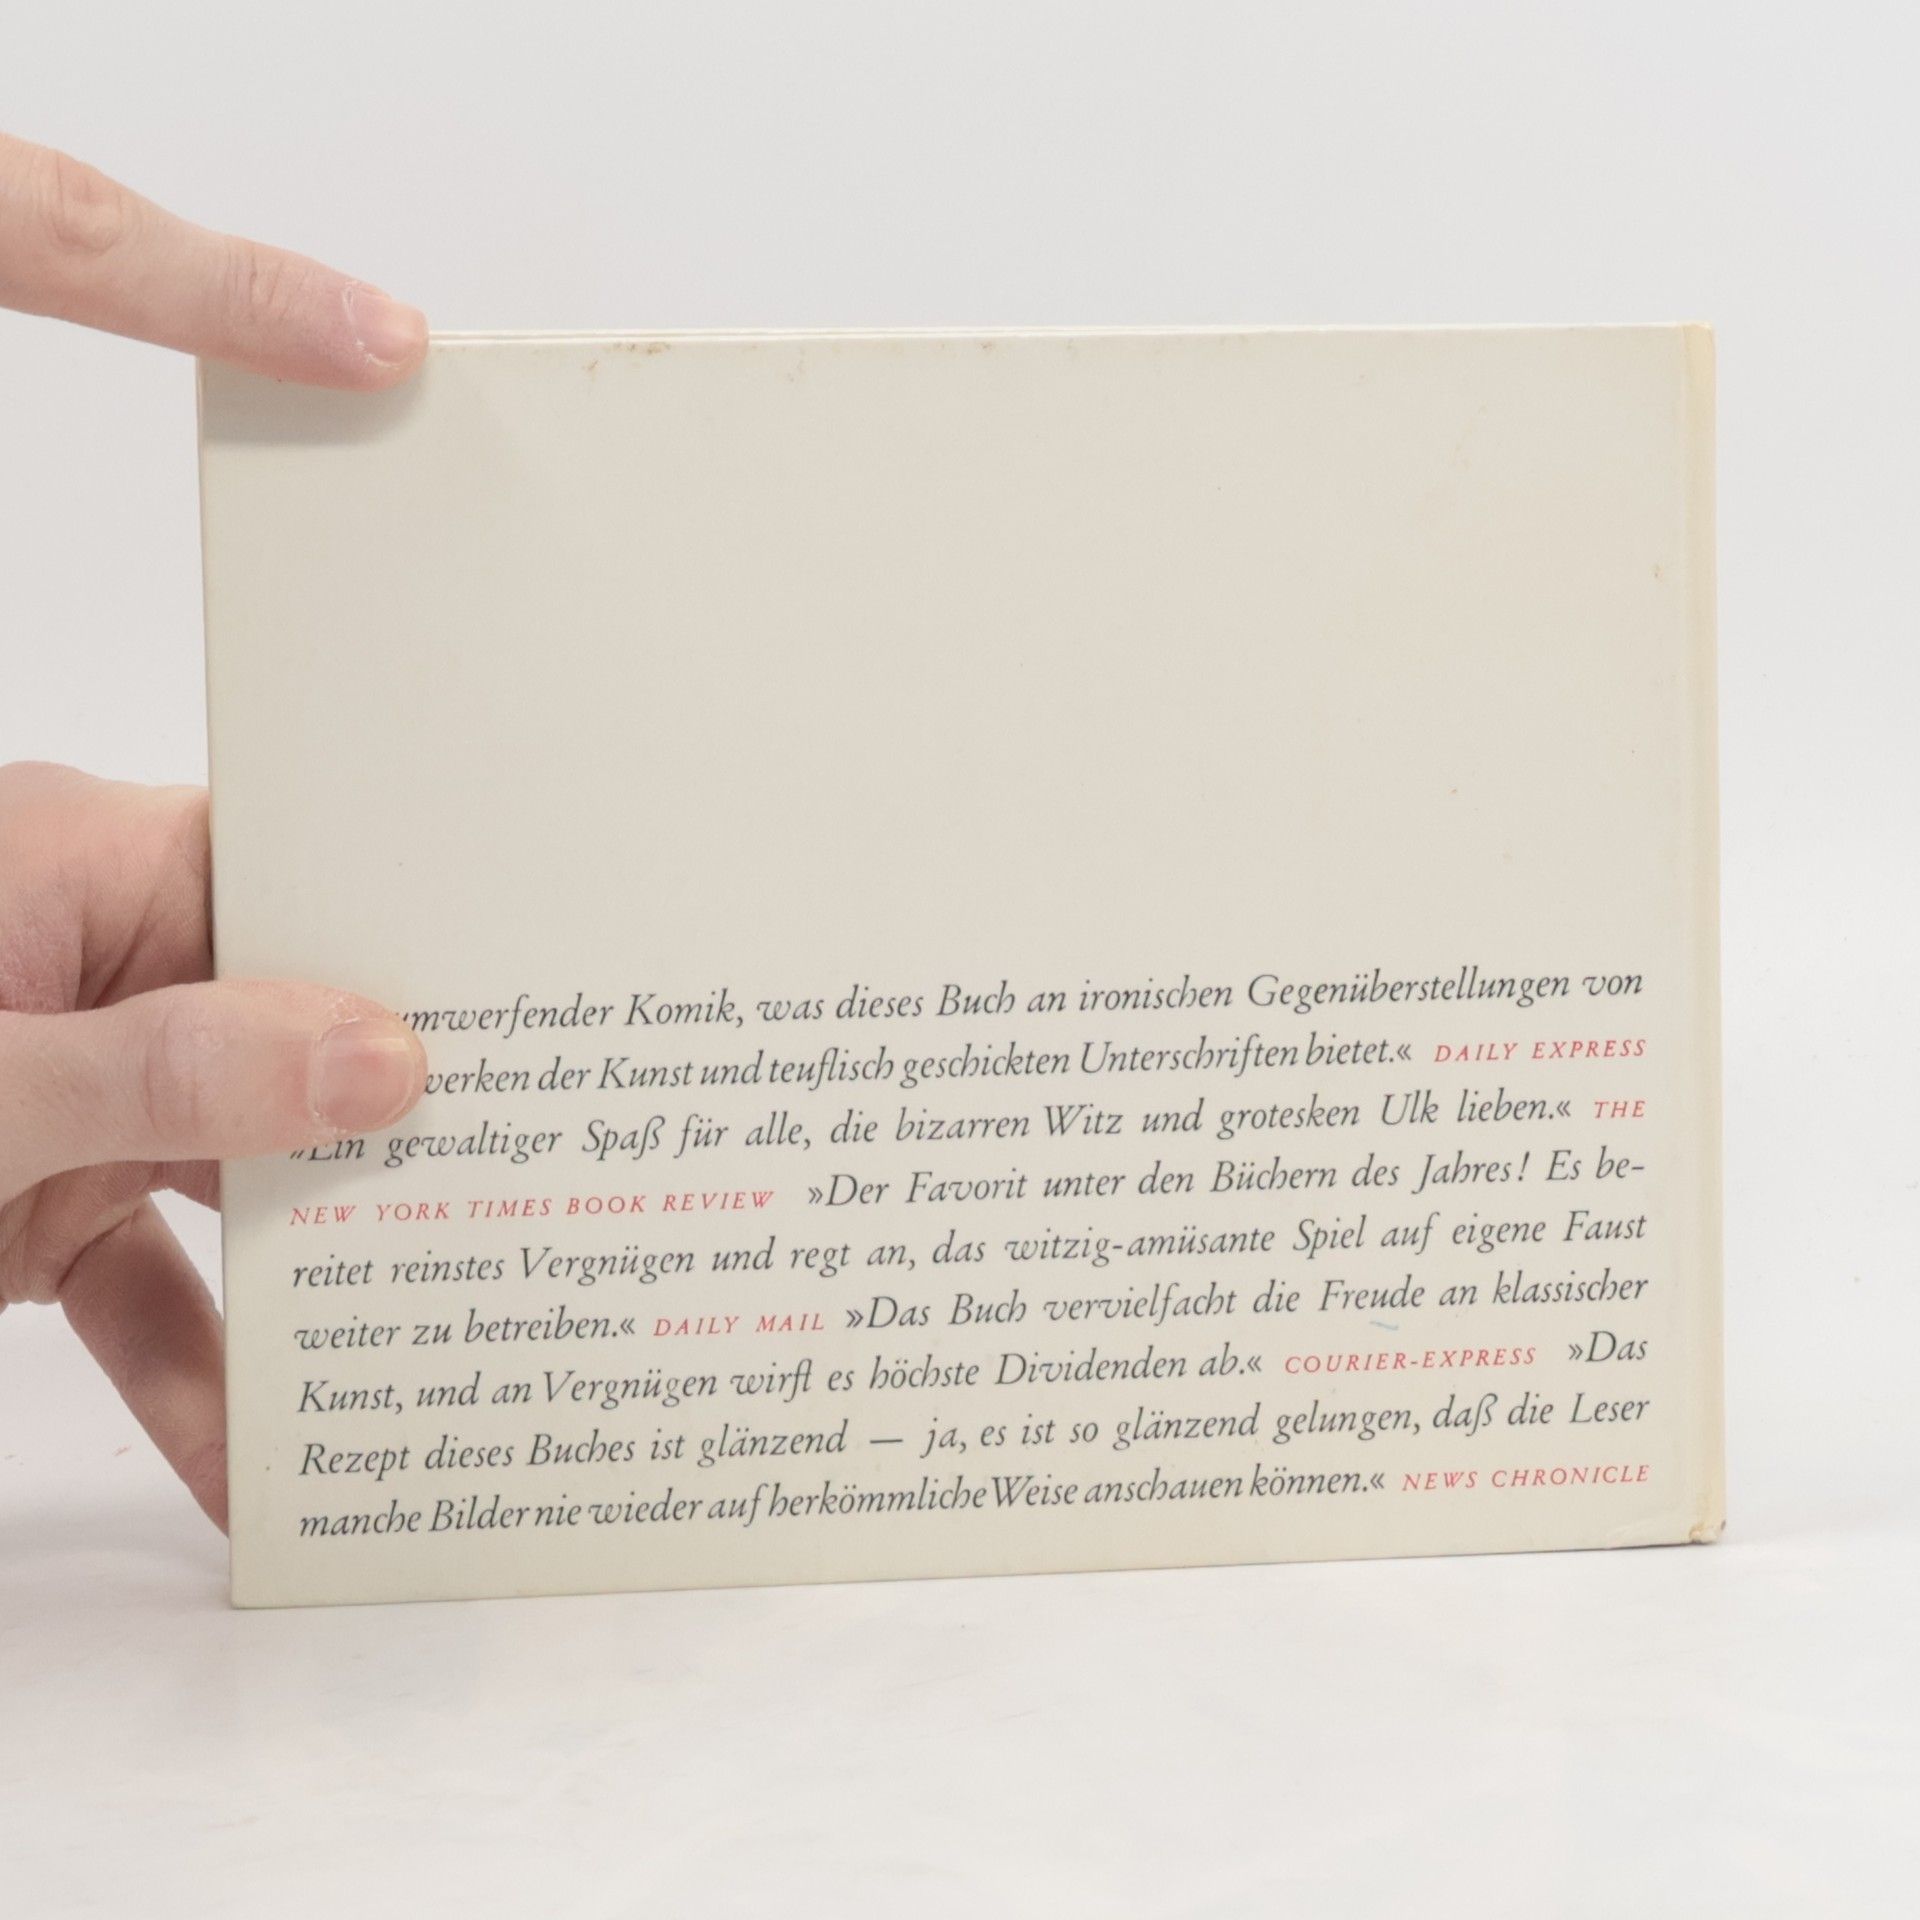 umwerfender Komik, was dieses Buch an ironischen Gegenüberstellungen von
der Kunst und teuflisch geschickten Unterschriften bietet.« DAILY EXPRESS
»Ein gewaltiger Spaß für alle, die bizarren Witz und grotesken Ulk lieben.« THE
NEW YORK TIMES BOOK REVIEW »Der Favorit unter den Büchern des Jahres! Es be-
reitet reinstes Vergnügen und regt an, das witzig-amüsante Spiel auf eigene Faust
weiter zu betreiben.« DAILY MAIL »Das Buch vervielfacht die Freude an klassischer
Kunst, und an Vergnügen wirft es höchste Dividenden ab.« COURIER-EXPRESS »Das
Rezept dieses Buches ist glänzend — ja, es ist so glänzend gelungen, daß die Leser
manche Bilder nie wieder auf herkömmliche Weise anschauen können.« NEWS CHRONICLE